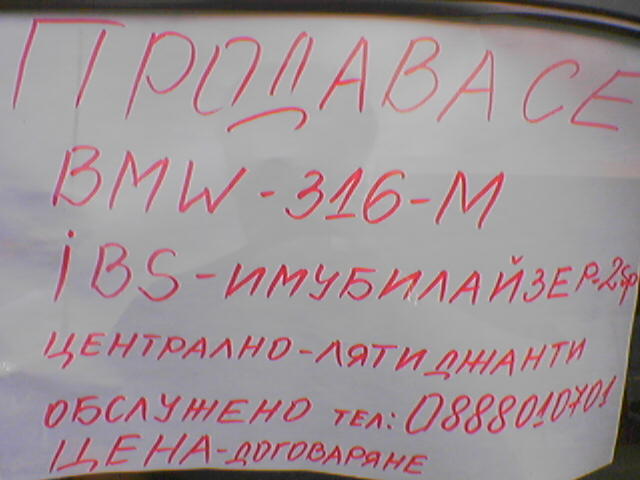 ПРОДАВА СЕ
BMW - 316 - M
iBS - ИМУБИЛАЙЗЕР - 2бр
ЦЕНТРАЛНО - ЛЯТИ ДЖАНТИ
ОБСЛУЖЕНО ТЕЛ: 0888010701
ЦЕНА - ДОГОВАРЯНЕ